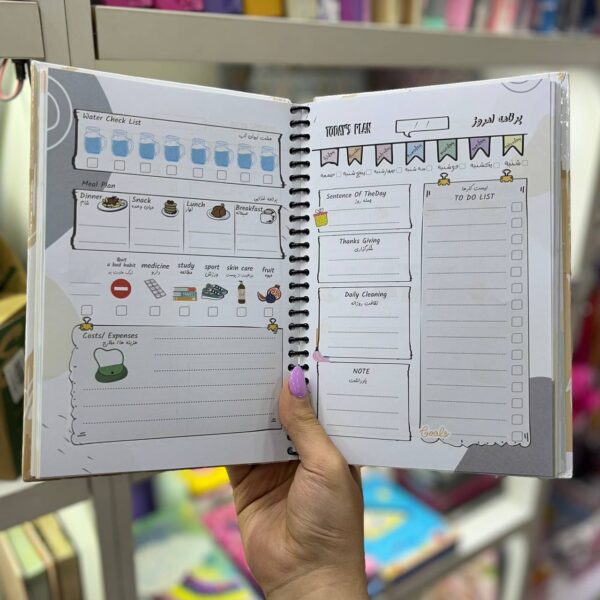 Water Check List
هشت لیوان آب
Meal Plan
برنامه غذایی
Dinner
شام
Snack
میان وعده
Lunch
ناهار
Breakfast
صبحانه
Quit
a bad habit
ترک عادت بد
medicine
دارو
study
مطالعه
sport
ورزش
skin care
مراقبت پوست
fruit
میوه
Costs/ Expenses
هزینه ها/ مخارج
TODAY'S PLAN
/ /
برنامه امروز
شنبه
یکشنبه
دوشنبه
سه شنبه
چهارشنبه
پنج شنبه
جمعه
Sentence Of TheDay
جمله روز
Thanks Giving
شکرگزاری
Daily Cleaning
نظافت روزانه
NOTE
یادداشت
لیست کارها
TO DO LIST
Goals